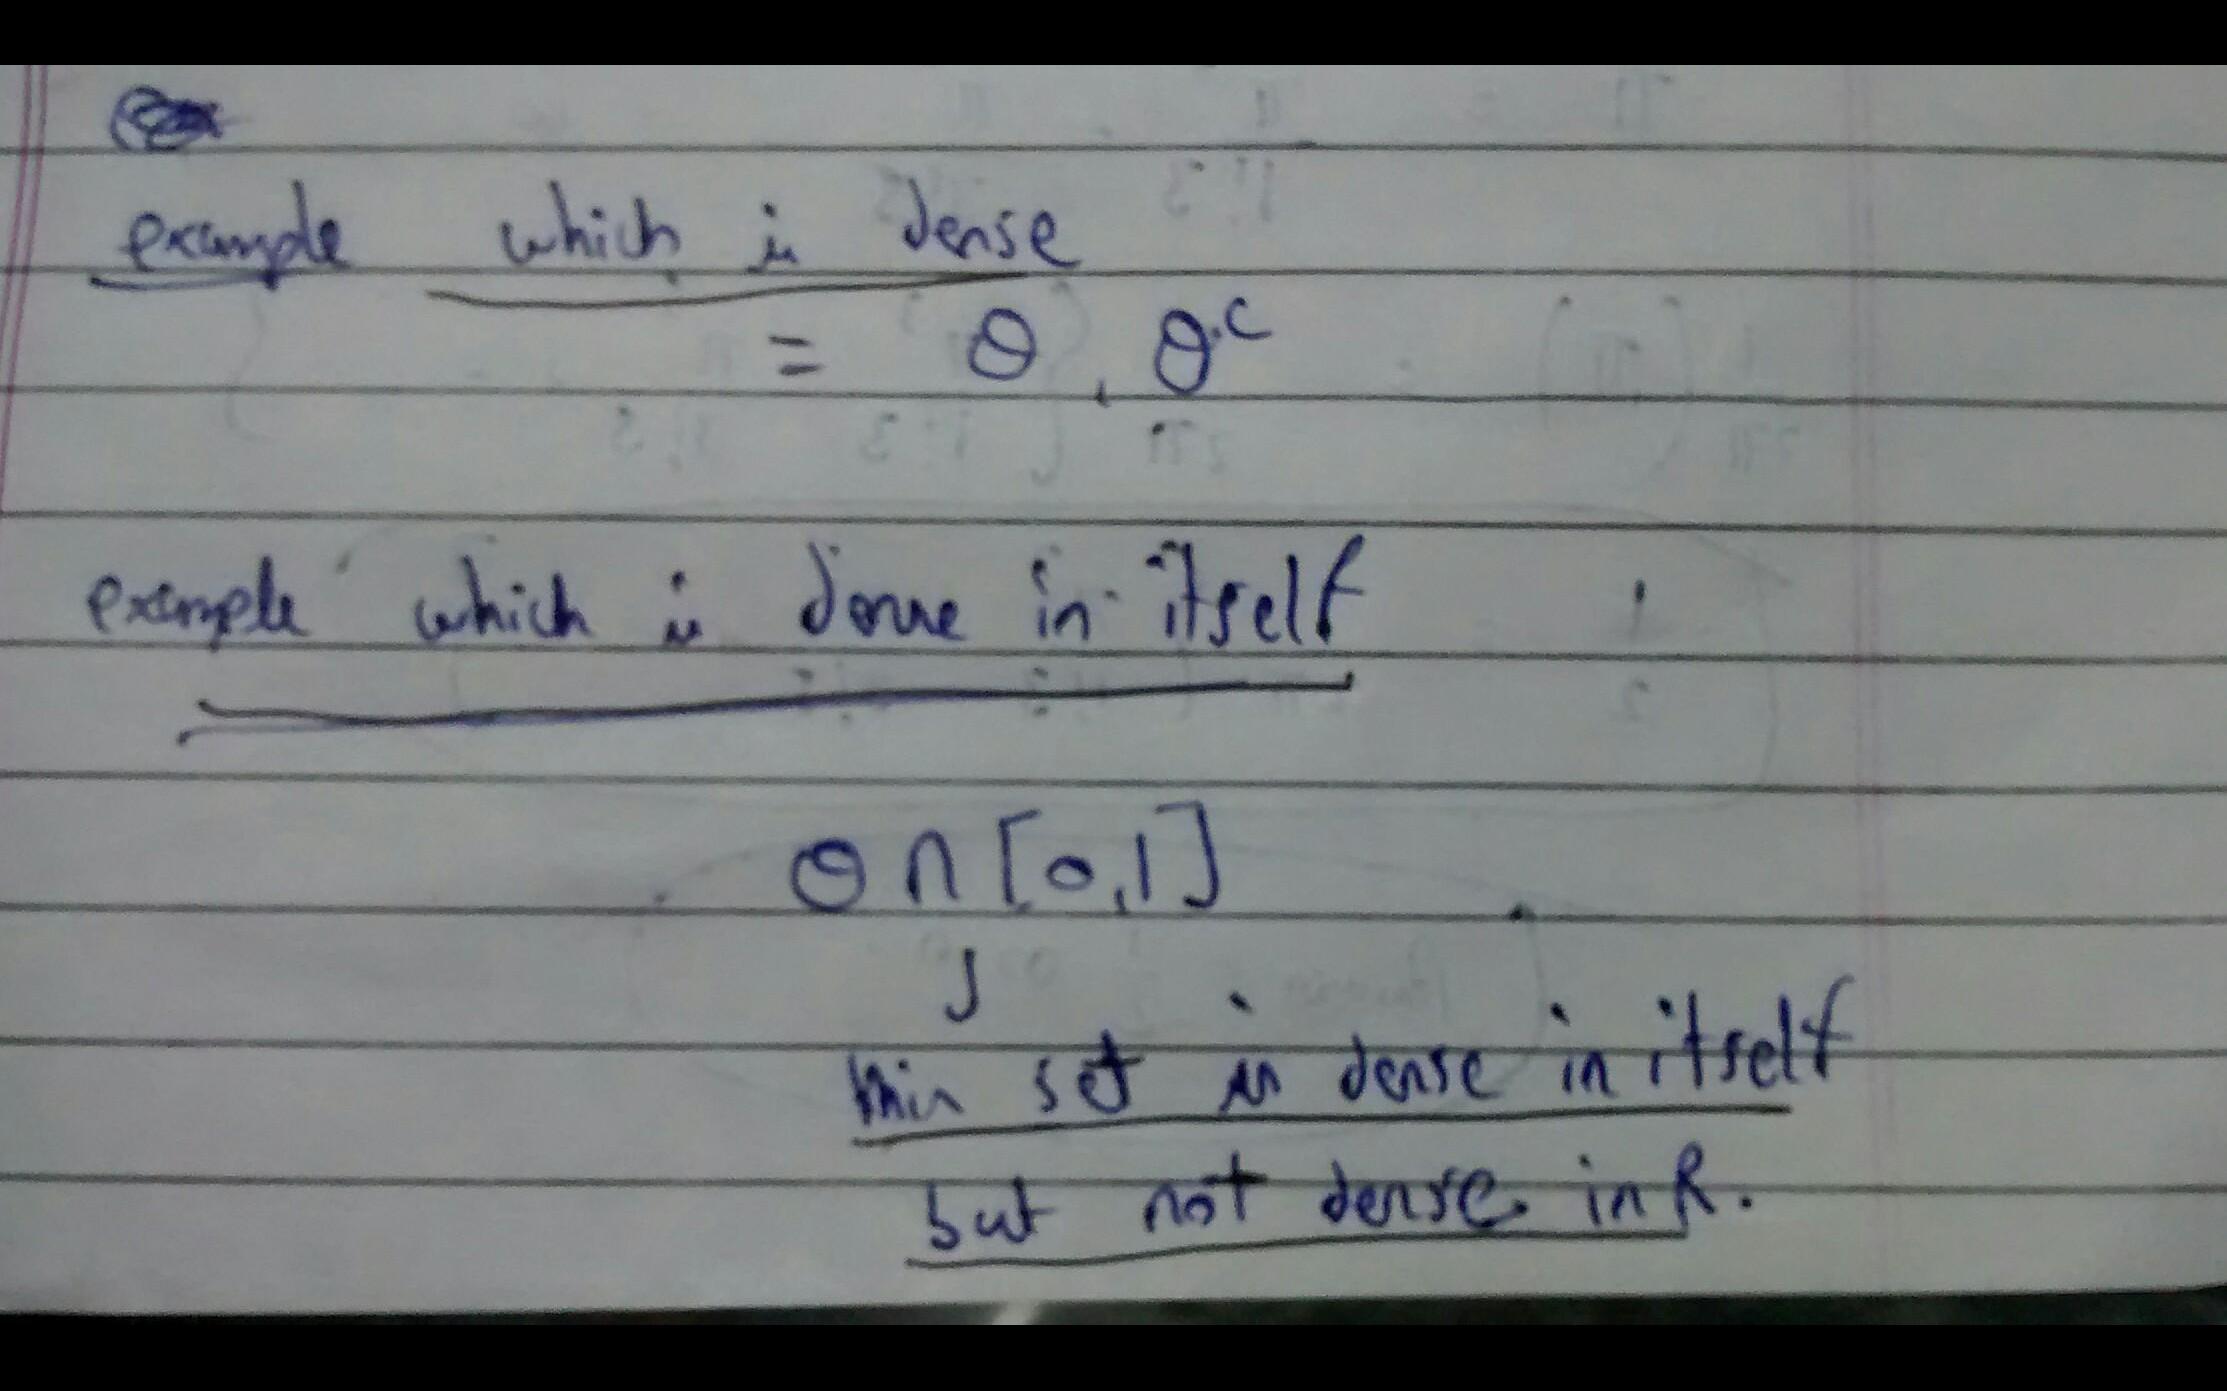 example which is dense
= Q, Q^c
example which is dense in itself
Q ∩ [0,1]
this set is dense in itself
but not dense in R.